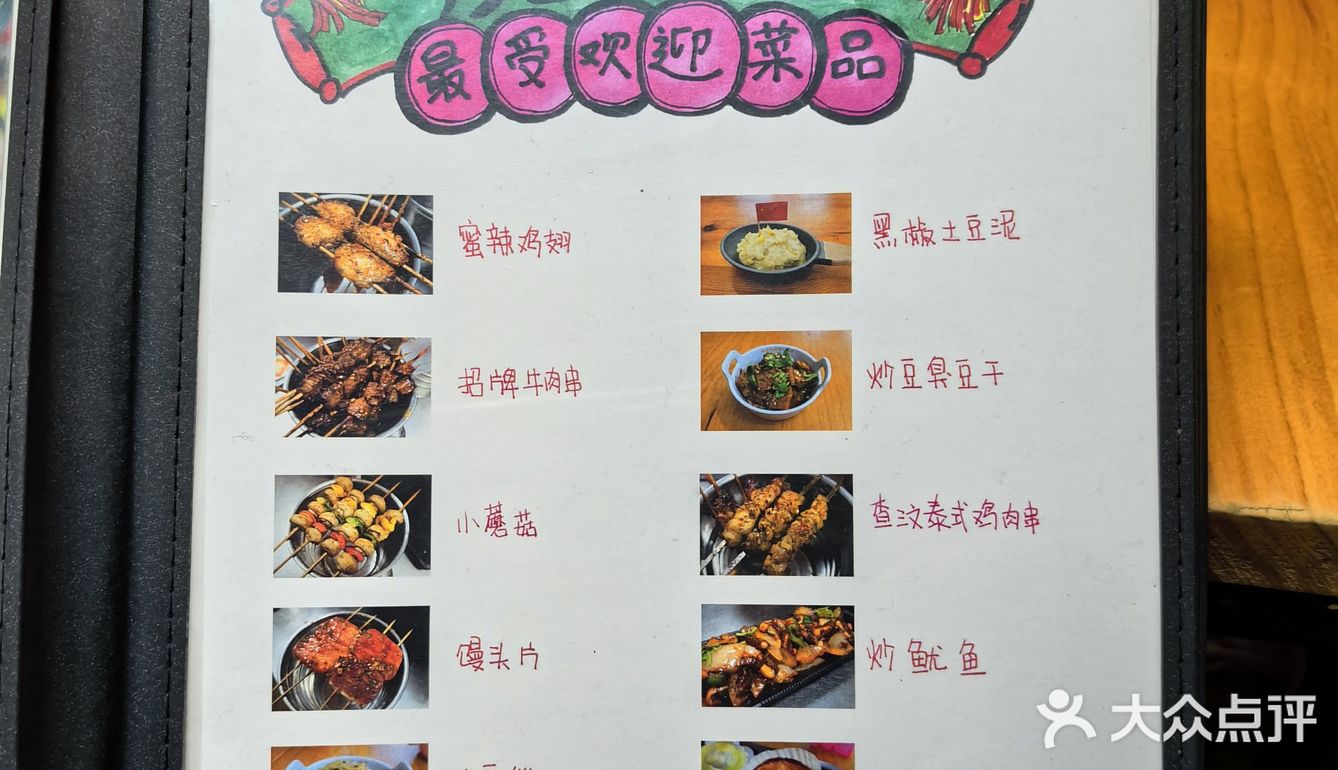 最受欢迎菜品
蜜辣鸡翅
黑椒土豆泥
招牌牛肉串
炒豆臭豆干
小蘑菇
查汶泰式鸡肉串
馒头片
炒鱿鱼
大众点评